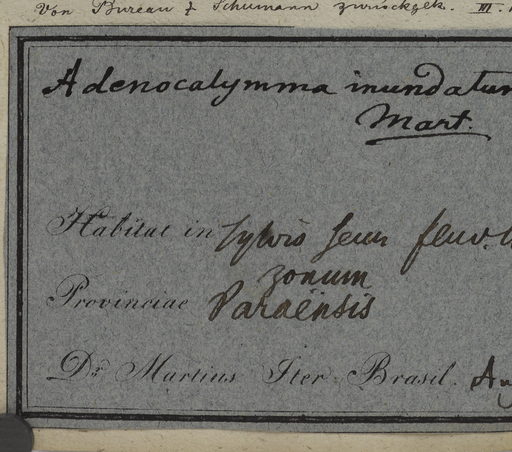 Von Bureau & Schumann zurückgek. VI.
Adenocalymma inundatum
Mart.
Habitat in sylvis
zonum
Provinciae Paraënsis
Dr. Martius Iter Brasil.